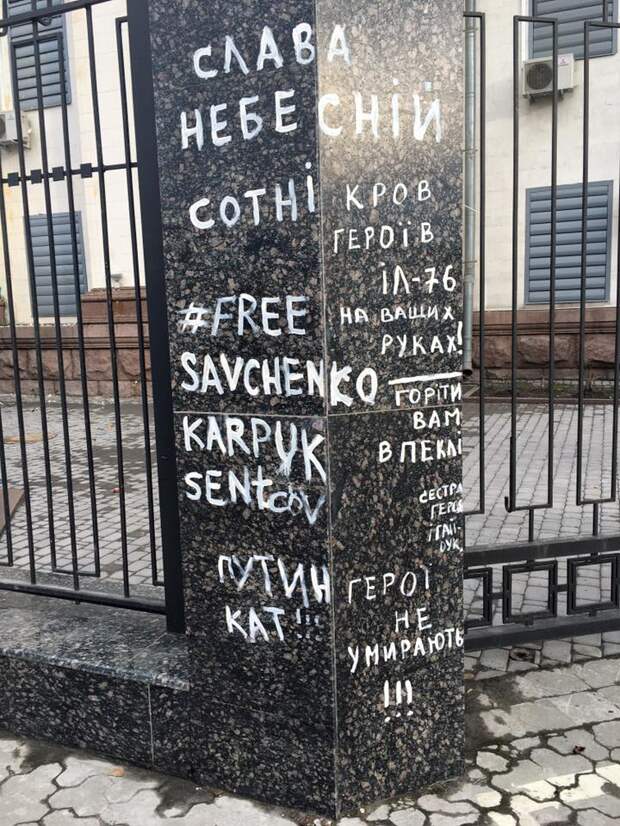 СЛАВА
НЕБЕСНІЙ
СОТНІ
#FREE
SAVCHENKO
KARPYUK
SENTSOV
ПУТИН
КАТ!!!
КРОВ
ГЕРОЇВ
ІЛ-76
НА ВАШИХ
РУКАХ!
ГОРІТИ
ВАМ
В ПЕКЛІ
СЕСТРА
ГЕРОЯ
ГЕРОЇ
НЕ
УМИРАЮТЬ
!!!